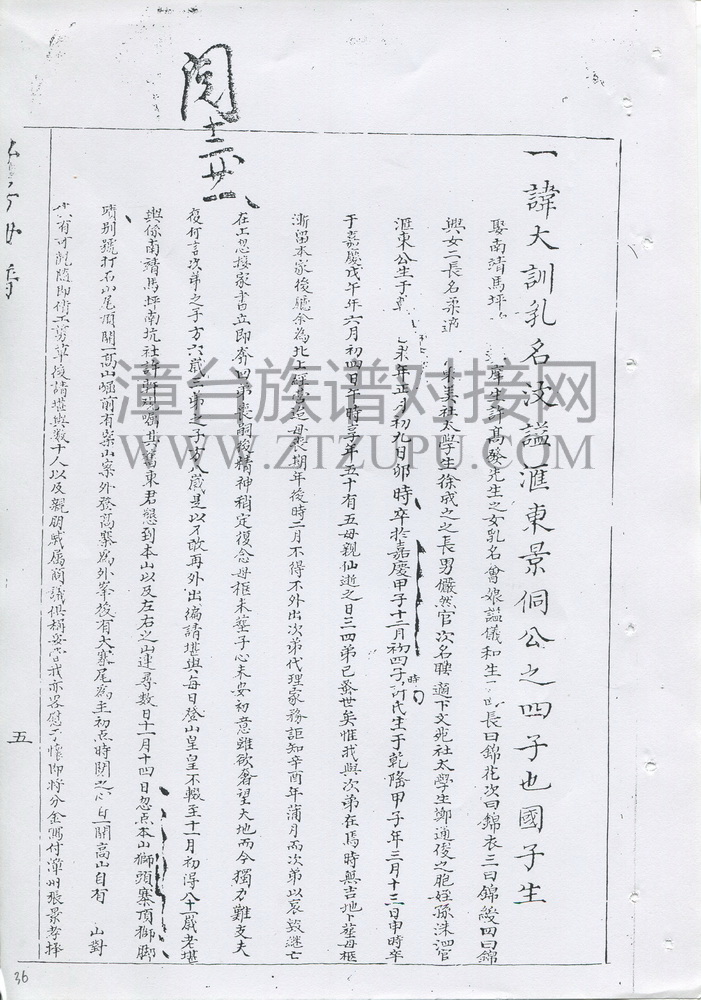 閱
十二世一
一諱大訓乳名汶諡滙東景侗公之四子也國子生
娶南靖馬坪 庠生許髙發先生之女乳名會娘諡儀和生 長曰錦花次曰錦衣三曰錦綬四曰錦
興女二長名柔適 東美社太學生徐成之之長男儼然官次名聘適下文苑社太學生鄭通俊之胞姪孫洙泗官
滙東公生于乾 未年正月初九日卯時卒於嘉慶甲子十二月初四子時 許氏生于乾隆甲子年三月十三日申時卒
于嘉慶戊午年六月初四日午時享年五十有五母親仙逝之日三四弟已蚤世矣惟我與次弟在焉時無吉地卜葬母柩
漸留本家後繼余為北上 母喪期年後時二月不得不外出次弟代理家務詎知辛酉年蒲月而次弟以哀致繼亡
在工忽接家書立即奔回弟喪嗣後精神稍定復念母柩未塟子心未安初意雖欲奢望大地而今獨力難支夫
復何言次弟之子方六歲三弟之子方八歲是以不敢再外出徧請堪輿每日登山皇皇不輟至十一月初得八十一歲老堪
輿係南靖馬坪南坑社許 其舊東君懇到本山以及左右之山連尋數日十一月十四日忽点本山獅頭寨頂獅腳
蹟別號打石山尾頂開一高山 前有柴山寨外發髙寨為外峯後有大寨尾為主初点時闊之 一開高山自有 山對
只有可觀隨即倩工剪草後請堪輿數十人以及親朋戚属商議俱稱妥當我亦畧慰于懷仰將分金寫付漳州張景孝擇
五
36
漳台族谱对接网
WWW.ZTZUPU.COM